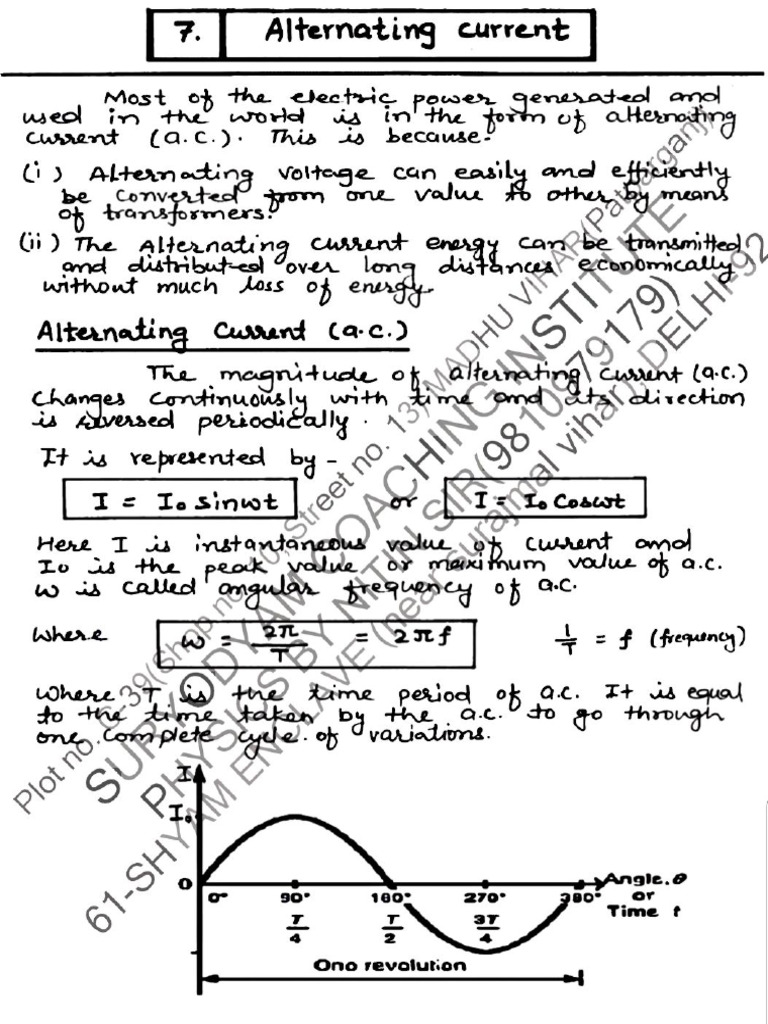 7. Alternating current
Most of the electric power generated and
used in the world is in the form of alternating
current (a.c.). This is because-
(i) Alternating voltage can easily and efficiently
be converted from one value to other by means
of transformers.
(ii) The Alternating current energy can be transmitted
and distributed over long distances economically
without much loss of energy.
Alternating Current (a.c.)
The magnitude of alternating current (a.c.)
changes continuously with time and its direction
is reversed periodically.
It is represented by -
I = I₀ sinωt or I = I₀ Cosωt
Here I is instantaneous value of current and
I₀ is the peak value or maximum value of a.c.
ω is called angular frequency of a.c.
Where ω = 2π/T = 2πf 1/T = f (frequency)
Where T is the time period of a.c. It is equal
to the time taken by the a.c. to go through
one complete cycle of variations.
I
I₀
O
0° 90° 180° 270° 360° Angle, θ
or
Time t
T/4 T/2 3T/4
One revolution
Plot no. C-39(Shop no. 10, Street no. 13) MADHU VIHAR(Patparganj)
SURYODYAM COACHING INSTITUTE
PHYSICS BY NITIN SIR(9810979179)
61-SHYAM ENCLAVE (near surajmal vihar), DELHI-92